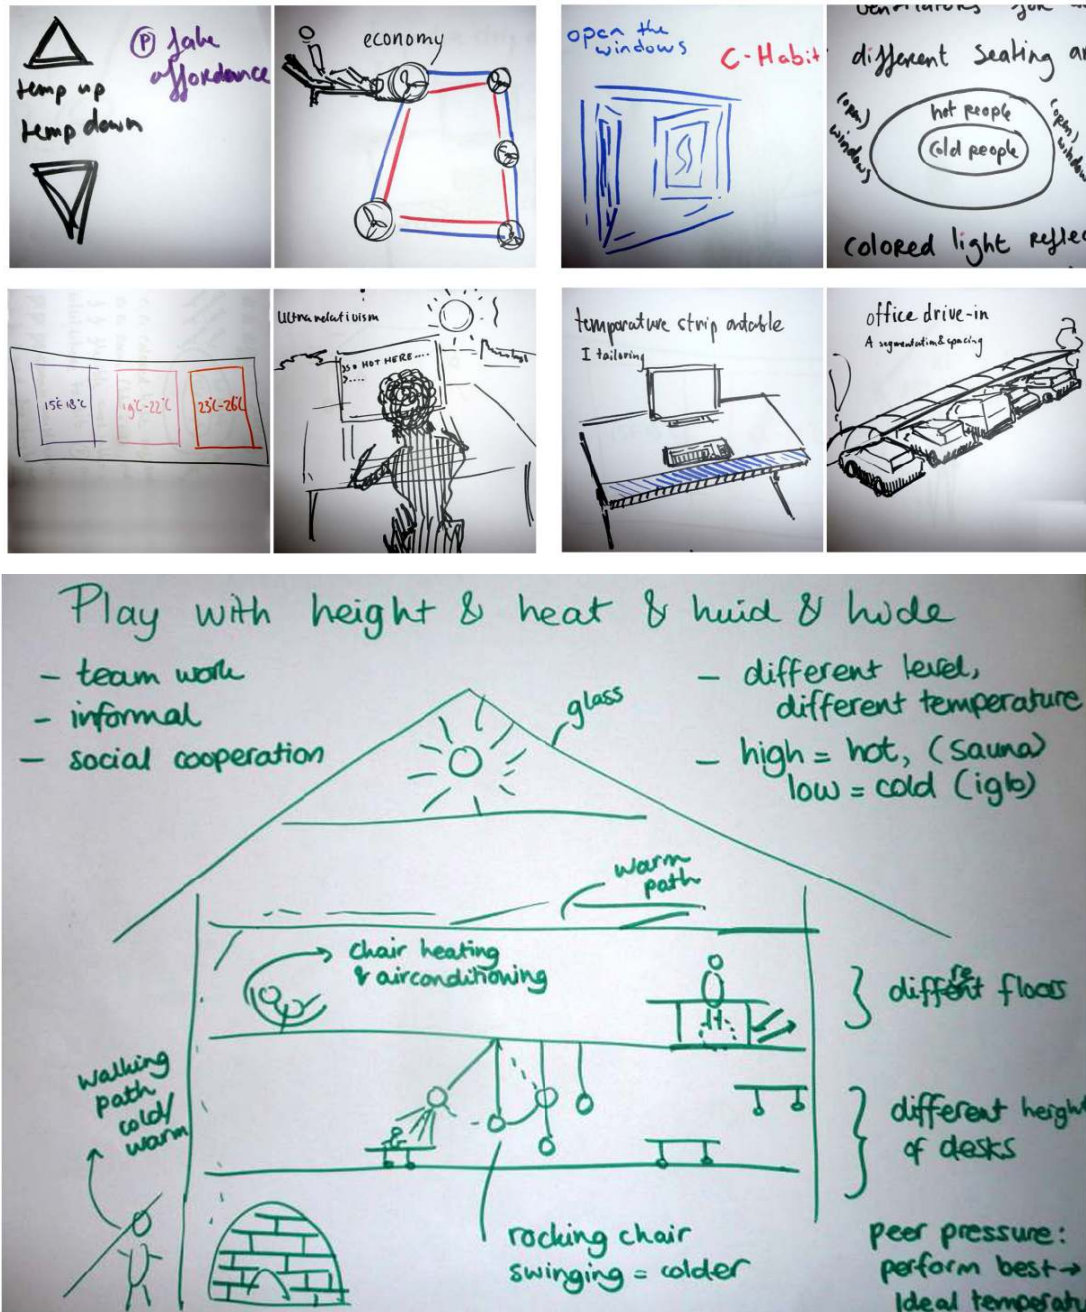 temp up
temp down
P fake
affordance
economy
open the
windows
C-Habit
ventilators for
different seating
(open)
windows
hot people
cold people
(open)
colored light
15 18°C
19°C-22°C
23°C-26°C
Ultra relativism
HOT HERE....
temperature strip ontable
I tailoring
office drive-in
A segmentation & spacing
Play with height & heat & huid & hide
- team work
- informal
- social cooperation
- different level,
different temperature
- high = hot, (sauna)
low = cold (iglo)
glass
warm
path
chair heating
& airconditioning
different floors
walking
path
cold/
warm
different height
of desks
rocking chair
swinging = colder
peer pressure:
perform best →
Ideal